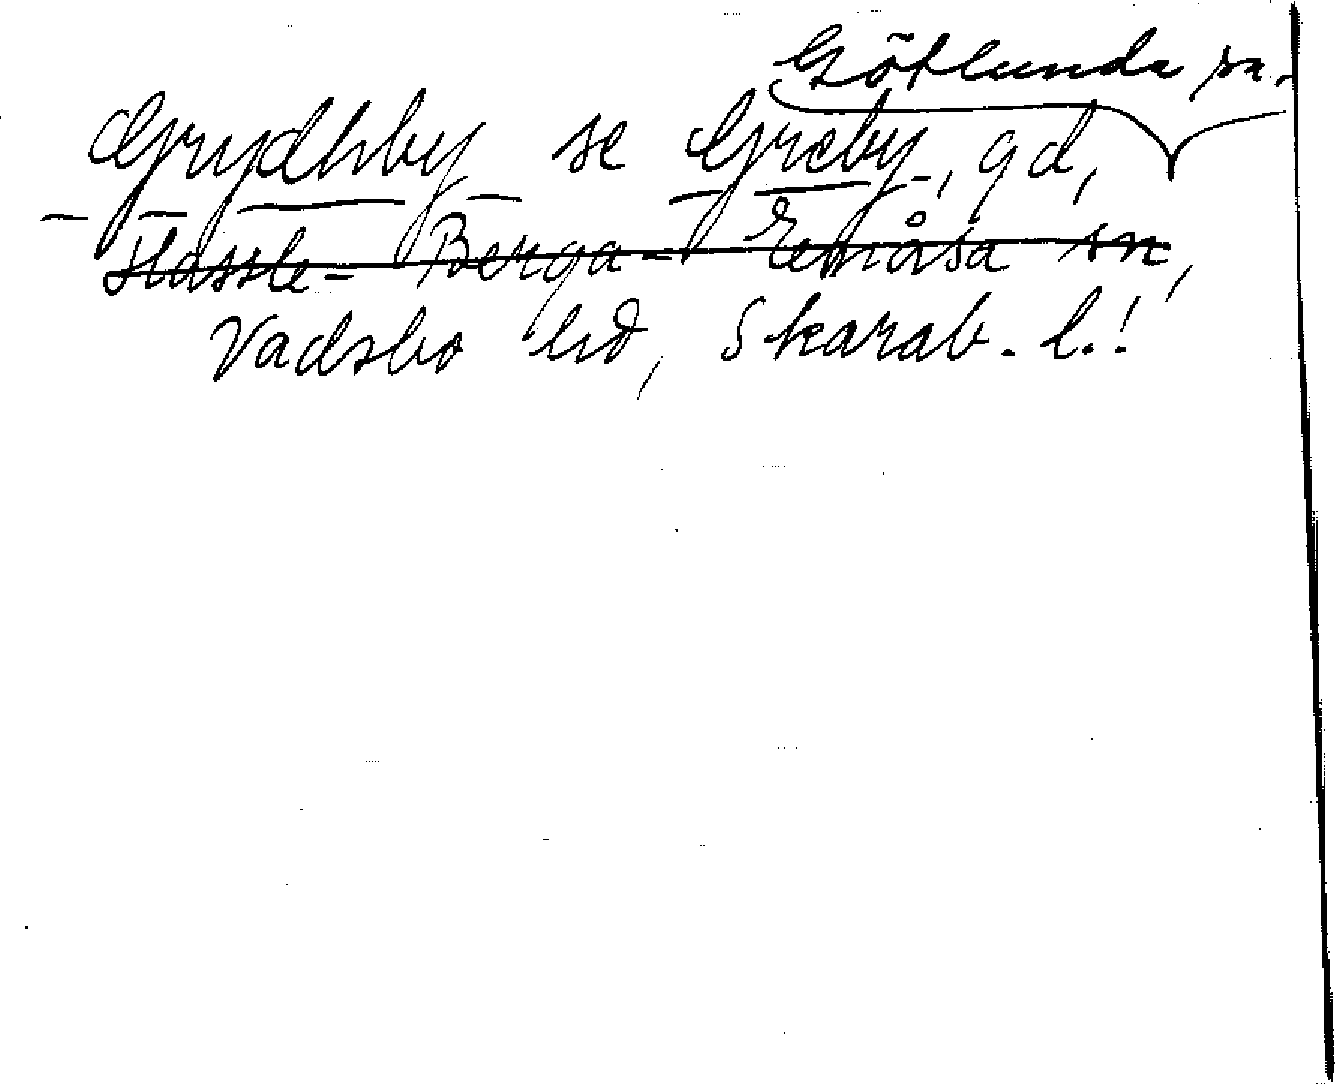 Götlunda sn.
Grydhby se Greby, gd,
Hassle-Berga-Enåsa sn,
Vadsbo hd, Skarab. l.!